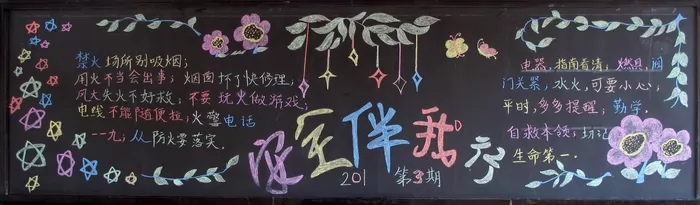 禁火场所别吸烟；
用火不当会出事；烟囱坏了快修理，
风大失火不好救，不要玩火做游戏；
电线不能随便拉；火警电话
一一九；从防火要落实。
安全伴我行
201 第3期
电器，指南看清；燃具，阀
门关紧，水火，可要小心，
平时，多多提醒；勤学，
自救本领；切记
生命第一.